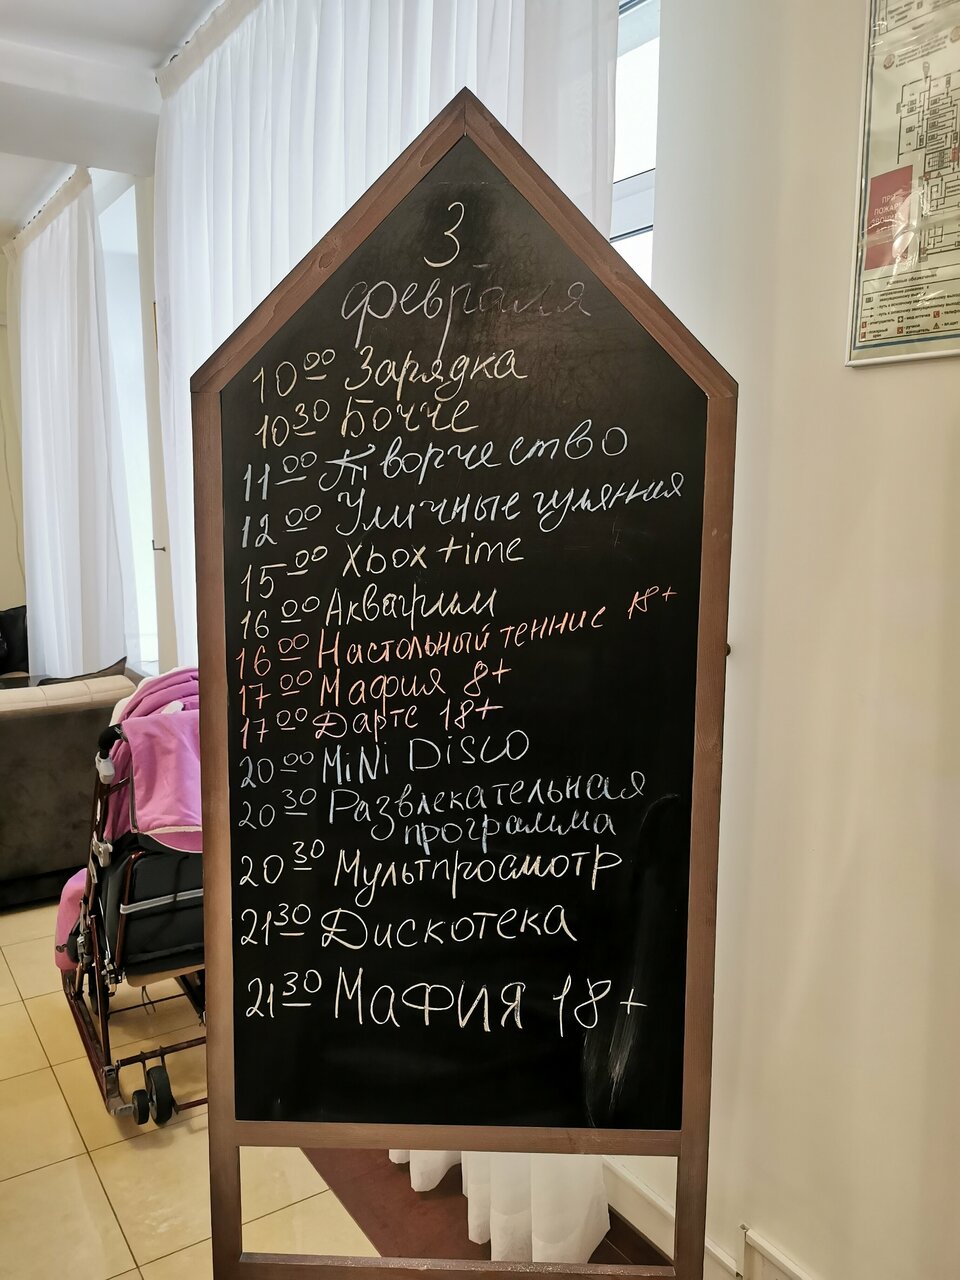 3
февраля
10 00 Зарядка
10 30 Бочче
11 00 Творчество
12 00 Уличные гуляния
15 00 Xbox time
16 00 Аквагрим
16 00 Настольный теннис 18+
17 00 Мафия 8+
17 00 Дартс 18+
20 00 MiNi DiSCO
20 30 Развлекательная
программа
20 30 Мультпросмотр
21 30 Дискотека
21 30 Мафия 18+